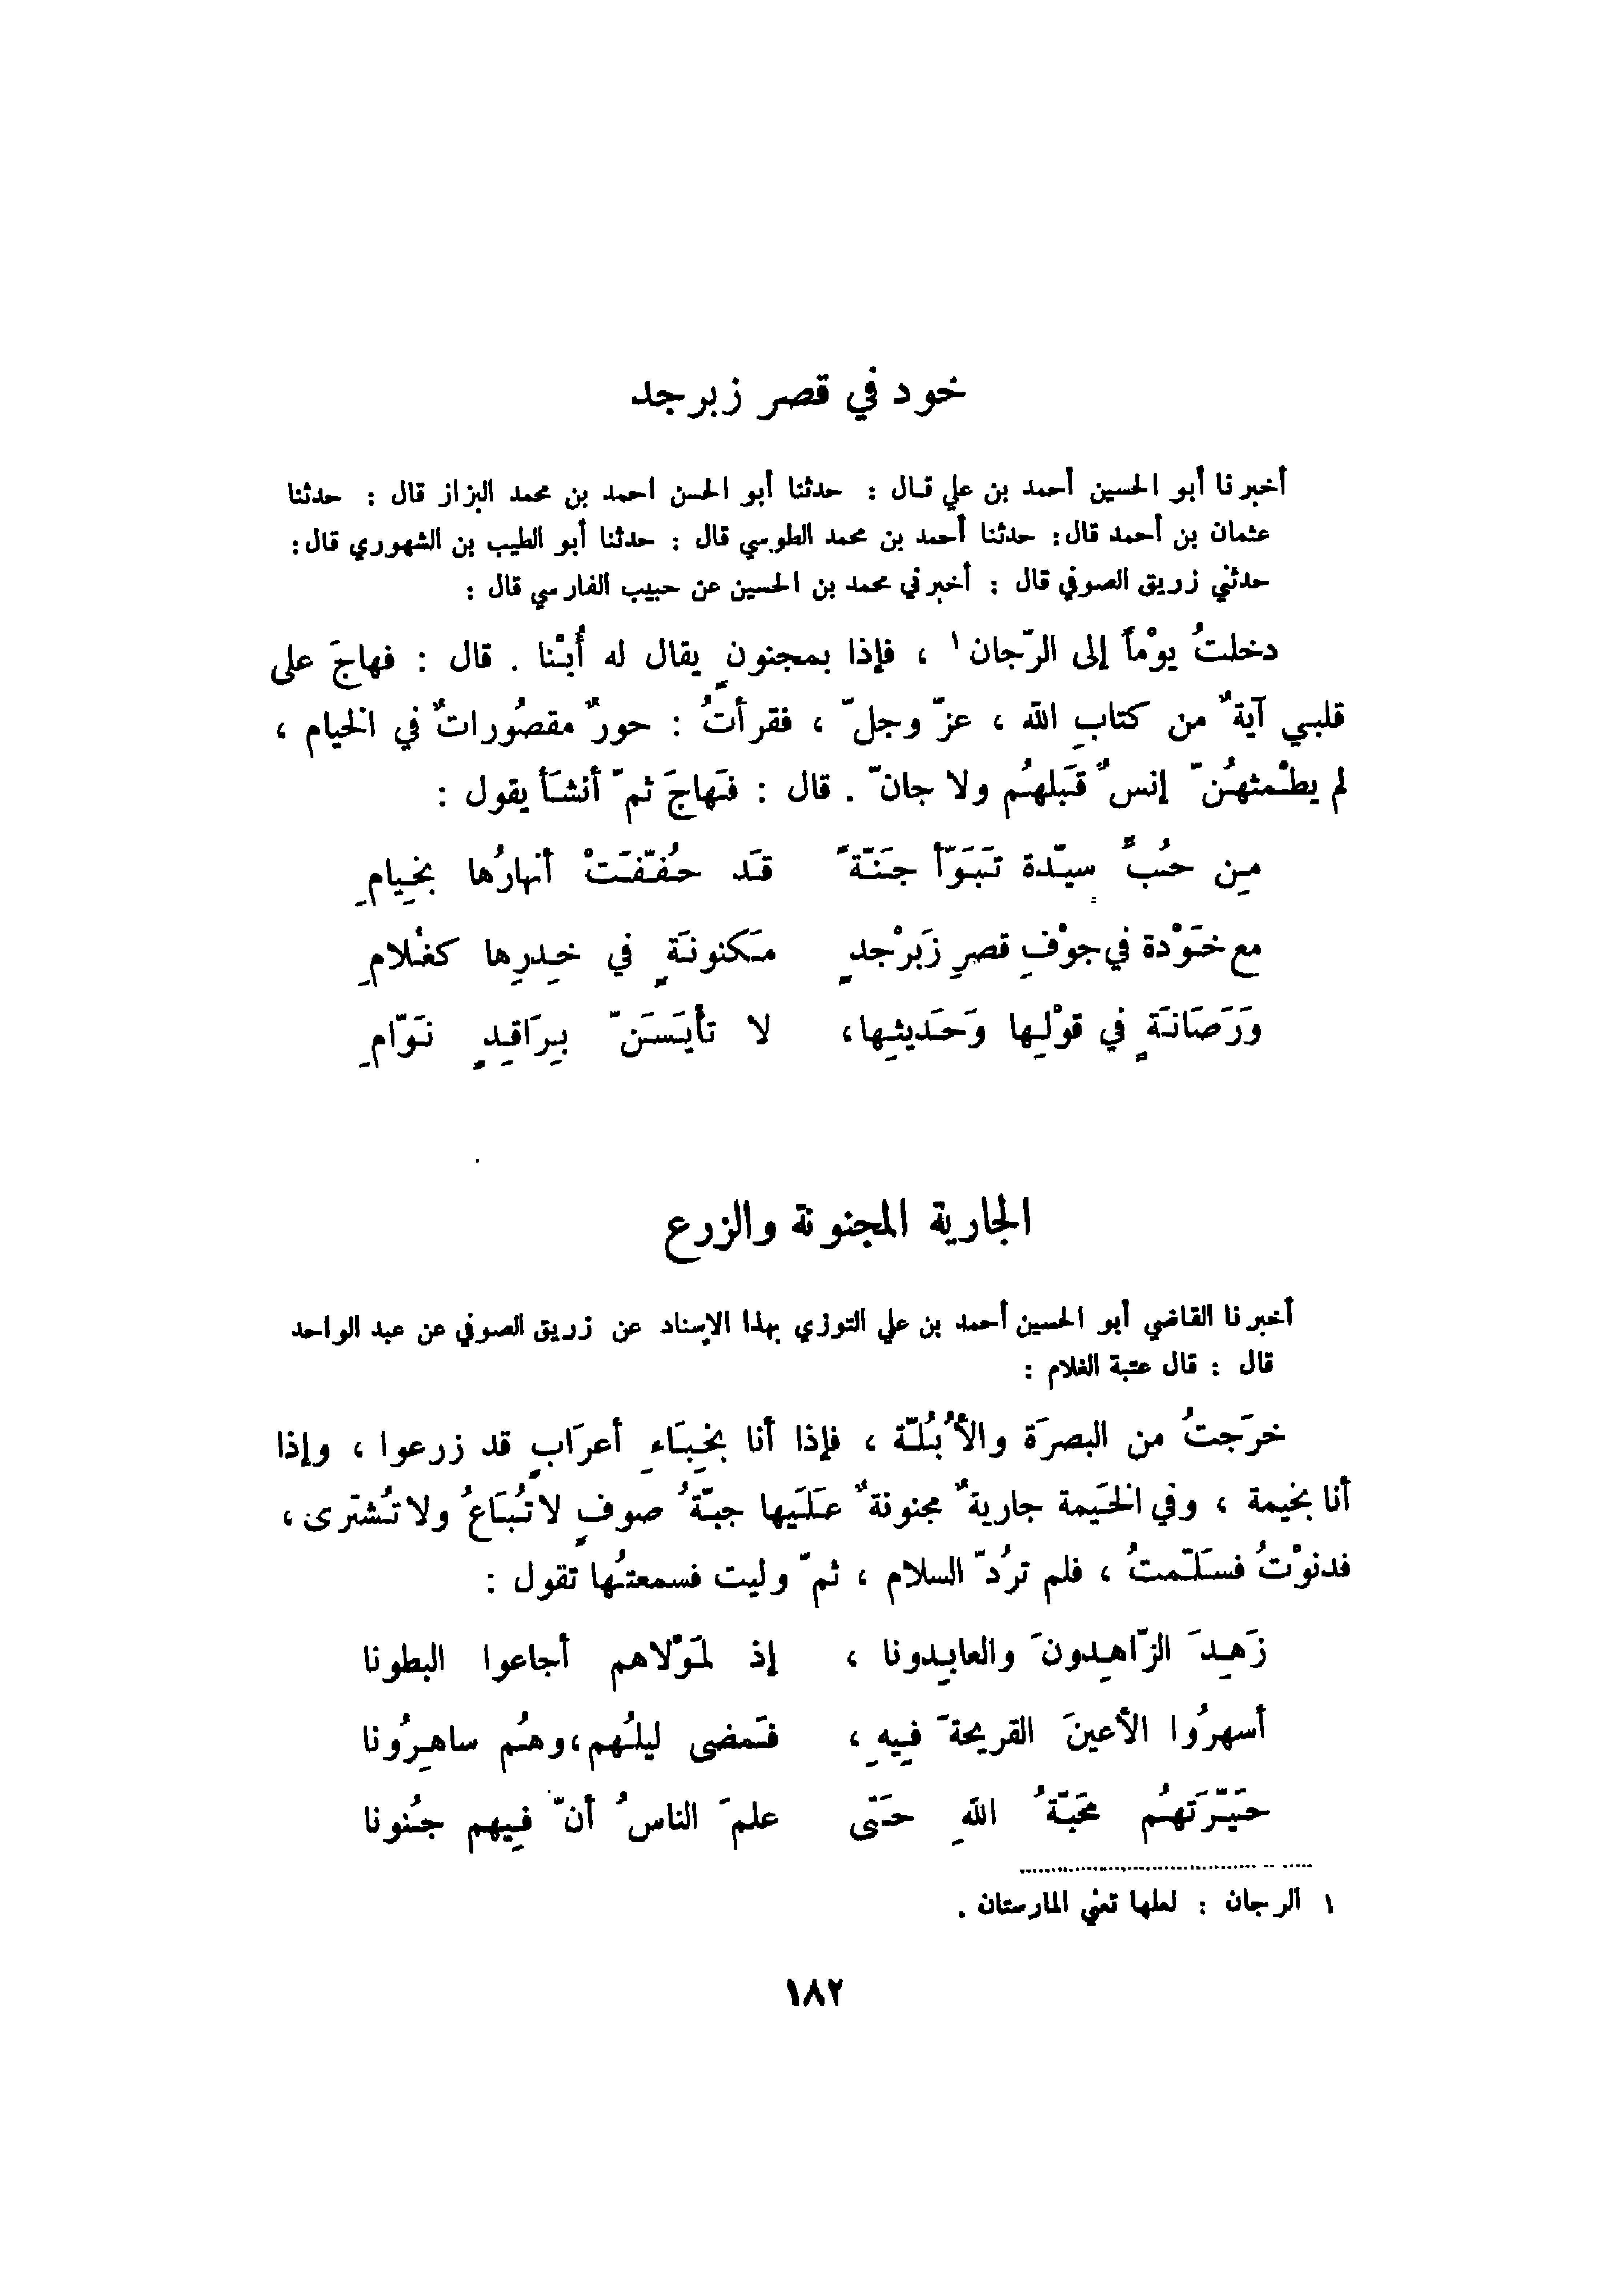 خود في قصر زبرجد
أخبرنا أبو الحسين أحمد بن علي قال : حدثنا أبو الحسن احمد بن محمد البزاز قال : حدثنا
عثمان بن أحمد قال: حدثنا أحمد بن محمد الطوسي قال : حدثنا أبو الطيب بن الشهوري قال:
حدثني زريق الصوفي قال : أخبرني محمد بن الحسين عن حبيب الفارسي قال :
دخلتُ يوْماً إلى الرّجان١ ، فإذا بمجنونٍ يقال له أُبْنا . قال : فهاجَ على
قلبي آيةٌ من كتابِ الله ، عزّ وجلّ ، فقرأتُ : حورٌ مقصُوراتٌ في الخيام ،
لم يطْمثهُنّ إنسٌ قَبلهُم ولا جانّ . قال : فَهاجَ ثمّ أنشَأ يقول :
مِن حُبّ سيّدة تَبَوّأ جَنّةً قَد حُفّفَتْ أنهارُها بخِيامِ
مع خَوْدة في جوْفِ قصرِ زَبرْجدٍ مَكنونَةٍ في خِدرِها كغُلامِ
وَرَصَانَةٍ في قوْلِها وَحَديثِها، لا تأيَسَنّ بِرَاقِدٍ نَوّامِ
الجارية المجنونة والزرع
أخبرنا القاضي أبو الحسين أحمد بن علي التوزي بهذا الإسناد عن زريق الصوفي عن عبد الواحد
قال : قال عتبة الغلام :
خرَجتُ من البصرَة والأُبُلّة ، فإذا أنا بخِبَاءِ أعرَابٍ قد زرعوا ، وإذا
أنا بخيمة ، وفي الخَيمة جاريةٌ مجنونةٌ عَلَيها جبّةُ صوفٍ لا تُبَاعُ ولا تُشترى ،
فدنوْتُ فسَلّمتُ ، فلم ترُدّ السلام ، ثمّ وليت فسمعتُها تقول :
زَهِدَ الزّاهِدونَ والعابِدونا ، إذ لمَوْلاهم أجاعوا البطونا
أسهرُوا الأعينَ القريحةَ فِيهِ ، فَمضى ليلُهم،وهُم ساهِرُونا
حَيّرَتهُم محَبّةُ اللهِ حَتّى علمَ الناسُ أنّ فِيهم جُنونا
١ الرجان : لعلها تعني المارستان .
١٨٢